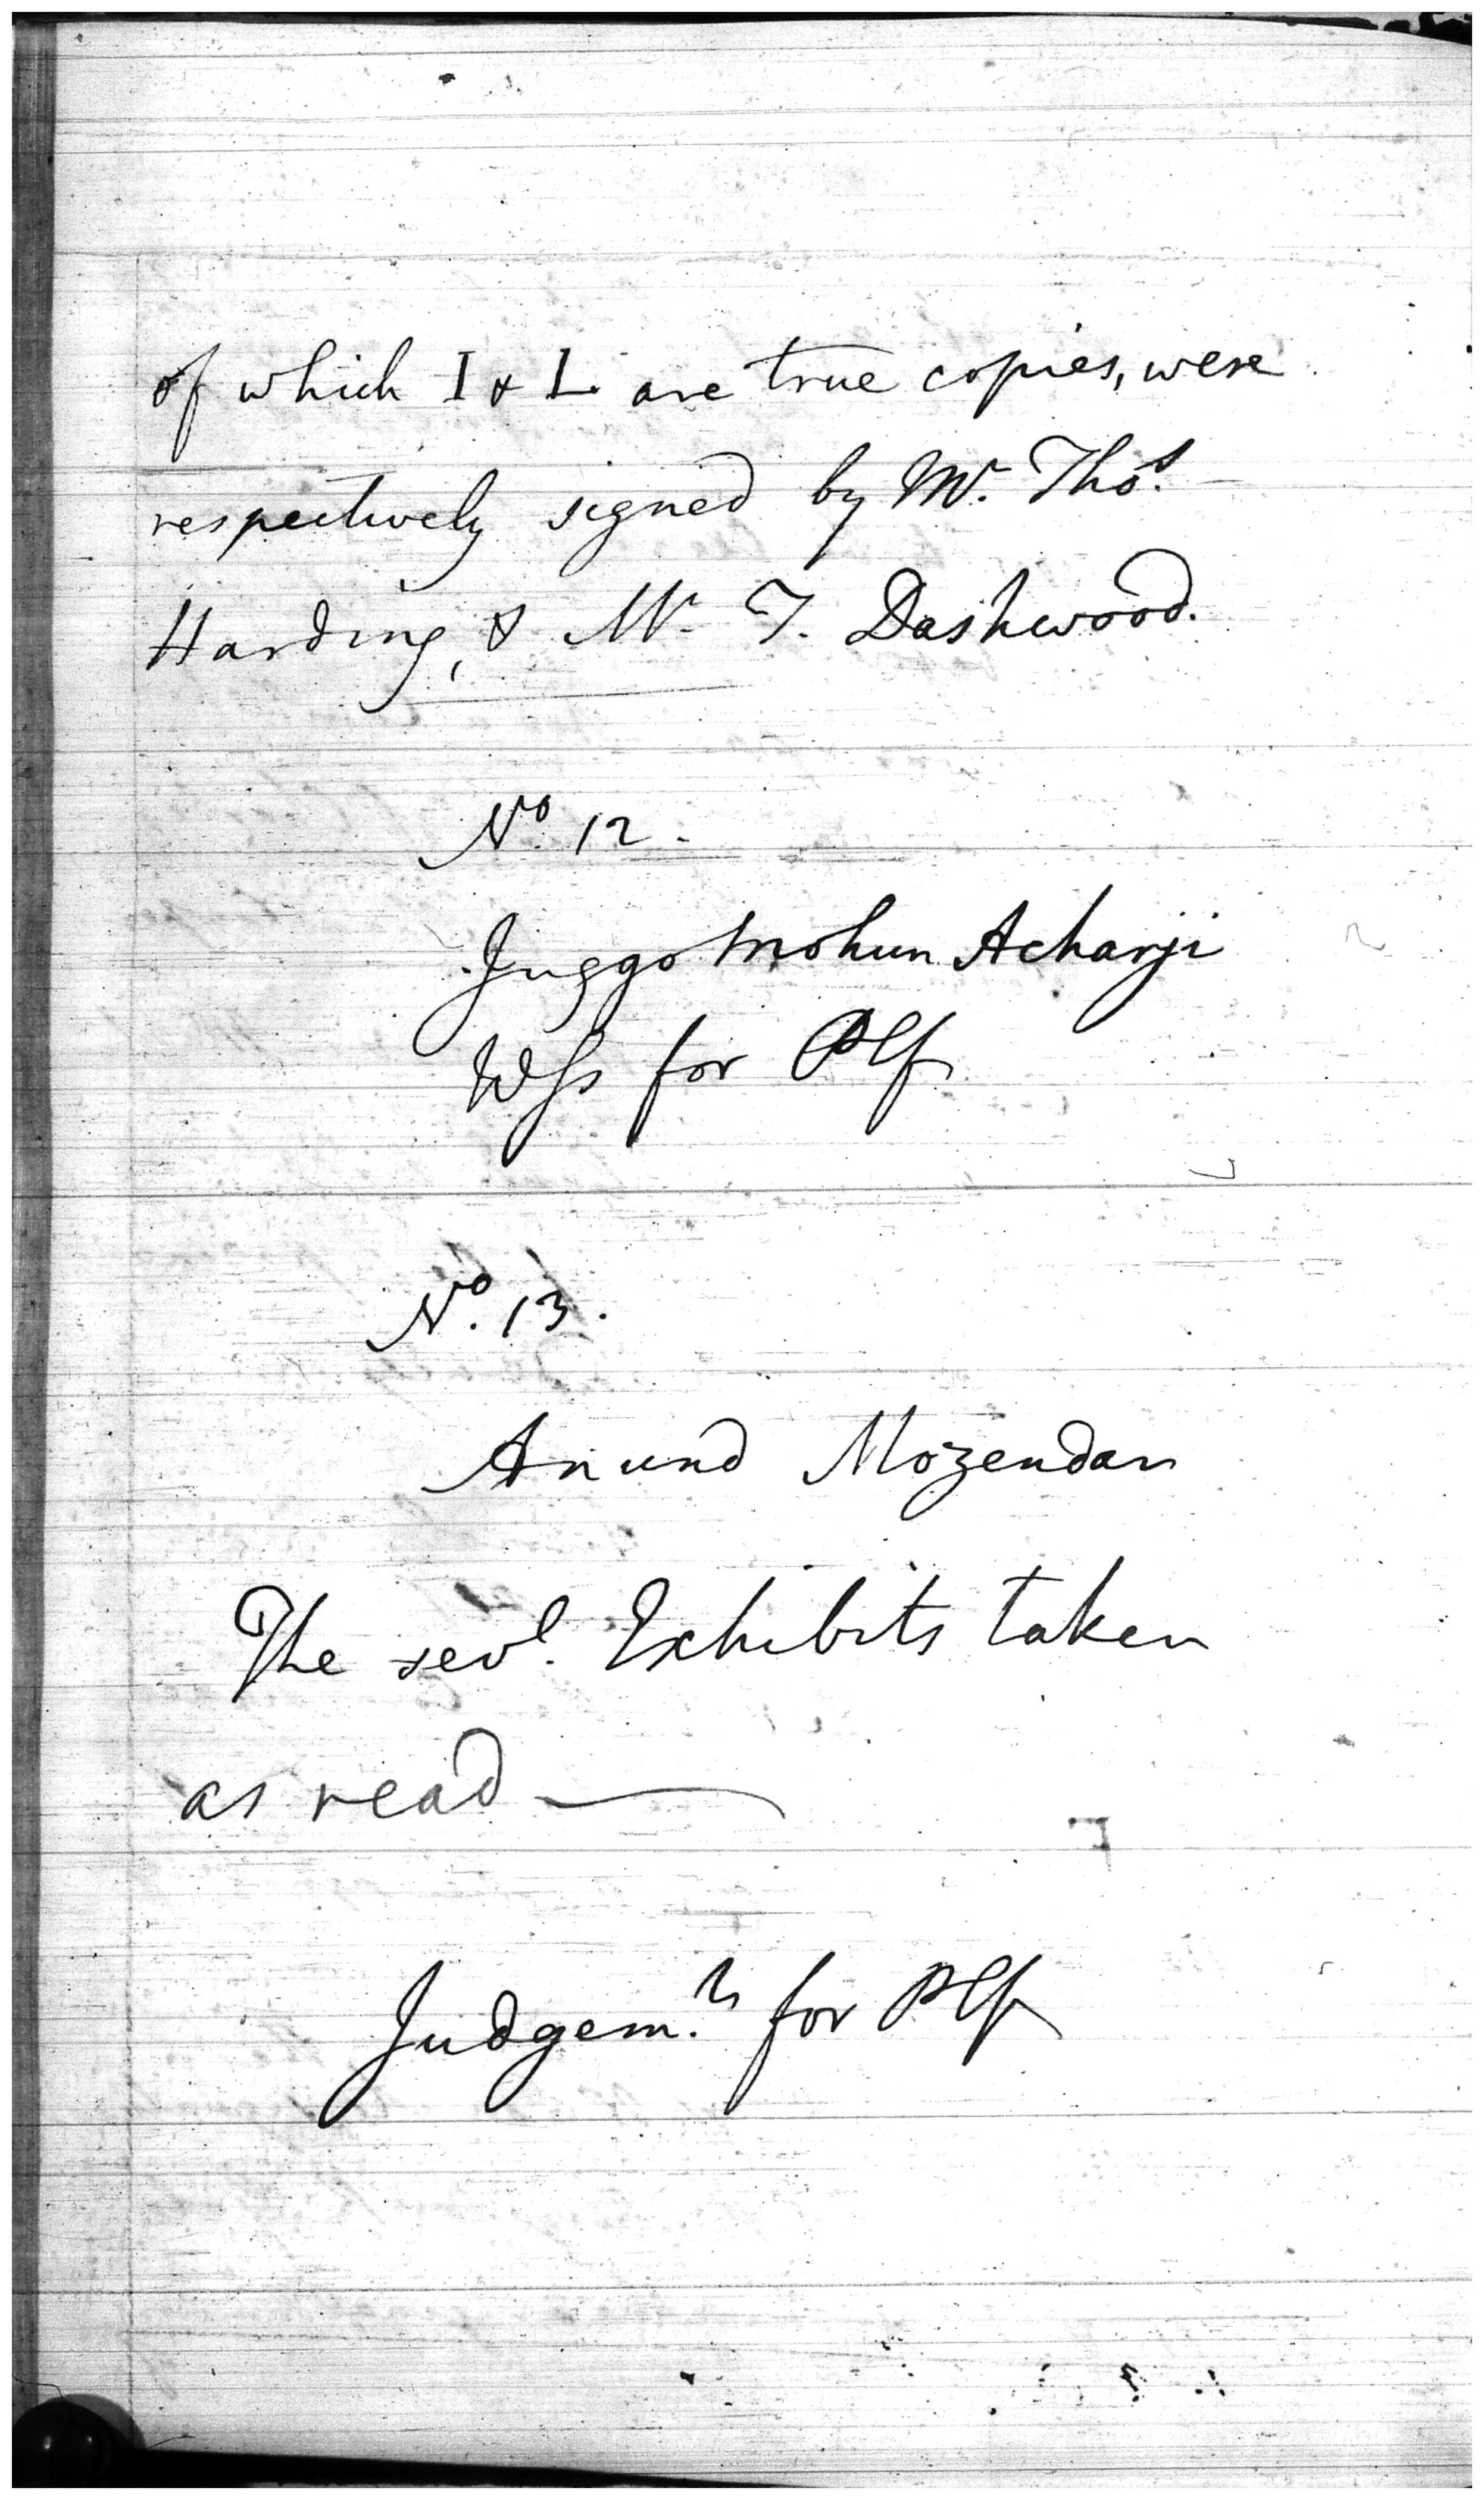 of which I & L are true copies, were
respectively signed by Mr. Thos.
Harding, & Mr. T. Dashwood.
No. 12.
Juggo Mohun Acharji
Wss for Plf
No. 13.
Anund Mozendar
The sevl. Exhibits taken
as read
Judgem.t for Plf